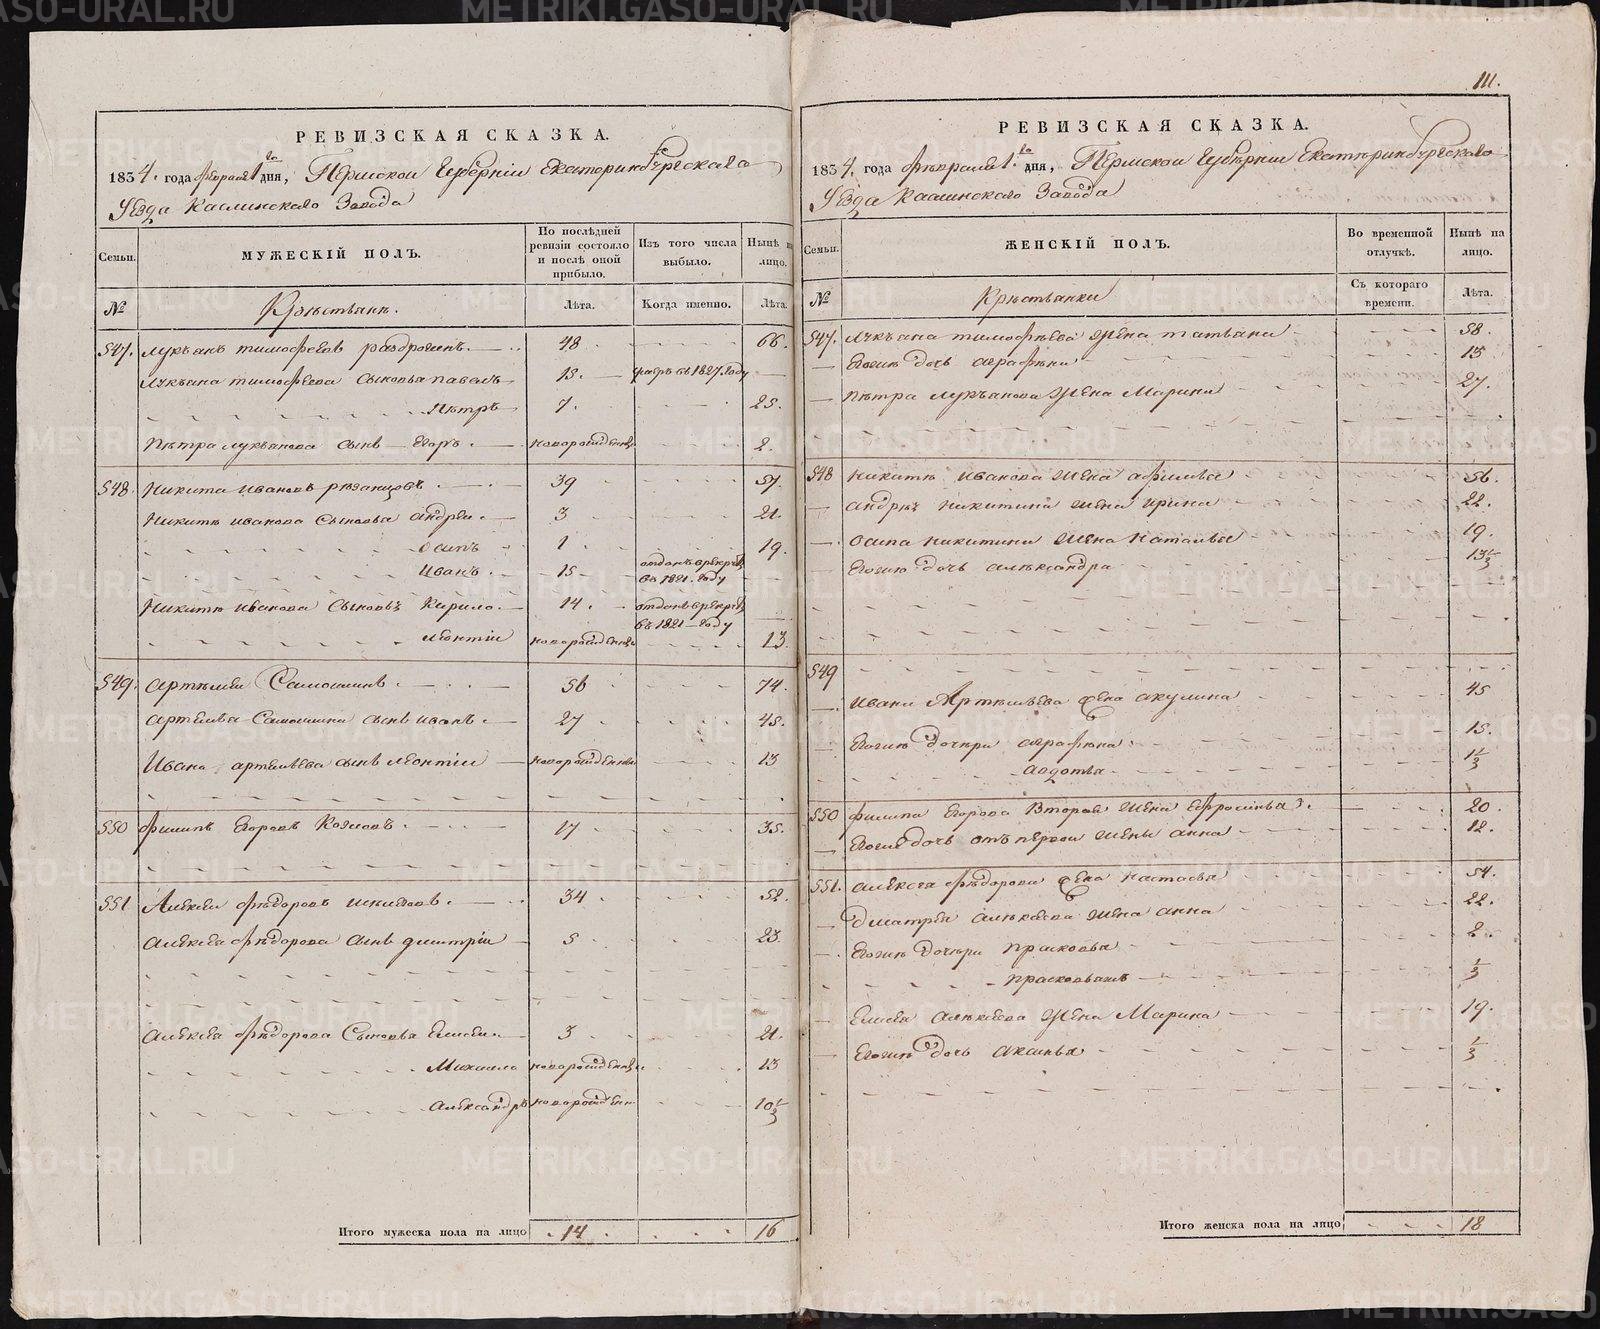 РЕВИЗСКАЯ СКАЗКА.
1834. года февраля 1го дня, Пермской Губернiи Екатеринбургскаго
Уѣзда Каслинскаго Завода
Семьи.
МУЖЕСКІЙ ПОЛЪ.
По послѣдней ревизіи состояло и послѣ оной прибыло.
Изъ того числа выбыло.
Нынѣ на лицо.
№
Крѣстьянѣ.
Лѣта.
Когда именно.
Лѣта.
547. Лукьянъ тимофеевъ 48 66.
Лукьяна тимофеева сыновья павелъ 15. умеръ въ 1827. году
Пѣтръ 7. 25.
Пѣтра лукьянова сынъ Егоръ. новорожденны 2.
548. Никита ивановъ рѣзанцовъ 39 57.
Никиты иванова сыновья андрей. 3 21.
осипъ 1 19.
Иванъ. 15 отданъ в рекруты въ 1821. году
Никиты иванова сыновья Кирило. 14. отданъ в рекруты въ 1821 году
леонтiи новорожденны 13.
549. артѣмей Самошинъ. 56 74.
артемья Самошина сынъ иванъ. 27 45.
Ивана артемьева сынъ леонтiи новорожденны 13
550 филипъ Егоровъ Козловъ. 17 35.
551 Алексеи фѣдоровъ 34 52.
алексея фѣдорова сынъ дмитрiи 5 23.
алексея фѣдорова Сыновья Елисеи. 3 21.
Михаило новорожденны 13
александръ новорожден 10 1/2
Итого мужеска пола на лицо 14 16
111.
РЕВИЗСКАЯ СКАЗКА.
1834. года февраля 1го дня, Пермской Губѣрнiи Екатѣринбургскаго
Уѣзда Каслинскаго Завода
Семьи.
ЖЕНСКІЙ ПОЛЪ.
Во временной отлучкѣ.
Нынѣ на лицо.
№
Крѣстьянки
Съ котораго времени.
Лѣта.
547. Лукьяна тимофѣева жена татьяна 58.
Егоже дочь аграфѣна 13
Пѣтра лукьянова жена Марина 27.
548 Никиты иванова жена афимья 56.
андрѣя никитина жена ирина 22.
осипа никитина жена наталья 19.
Егоже дочь алѣксандра 13 1/2
549
Ивана Артѣмьева жена акулина 45
Егоже дочѣри аграфѣна. 15.
авдотья 1/2
550 филипа Егорова Вторая жена Ефросинья. 20.
Егоже дочь отъ первой жены анна 12.
551. алексея фѣдорова жена настасья 51.
дмитрея алѣксеева жена анна 22.
Егоже дочѣри прасковья 2.
прасковьяжъ 1/2
Елисея алѣксеева жена Марина 19.
Егоже дочь аксинья 1/2
Итого женска пола на лицо 18
METRIKI.GASO-URAL.RU